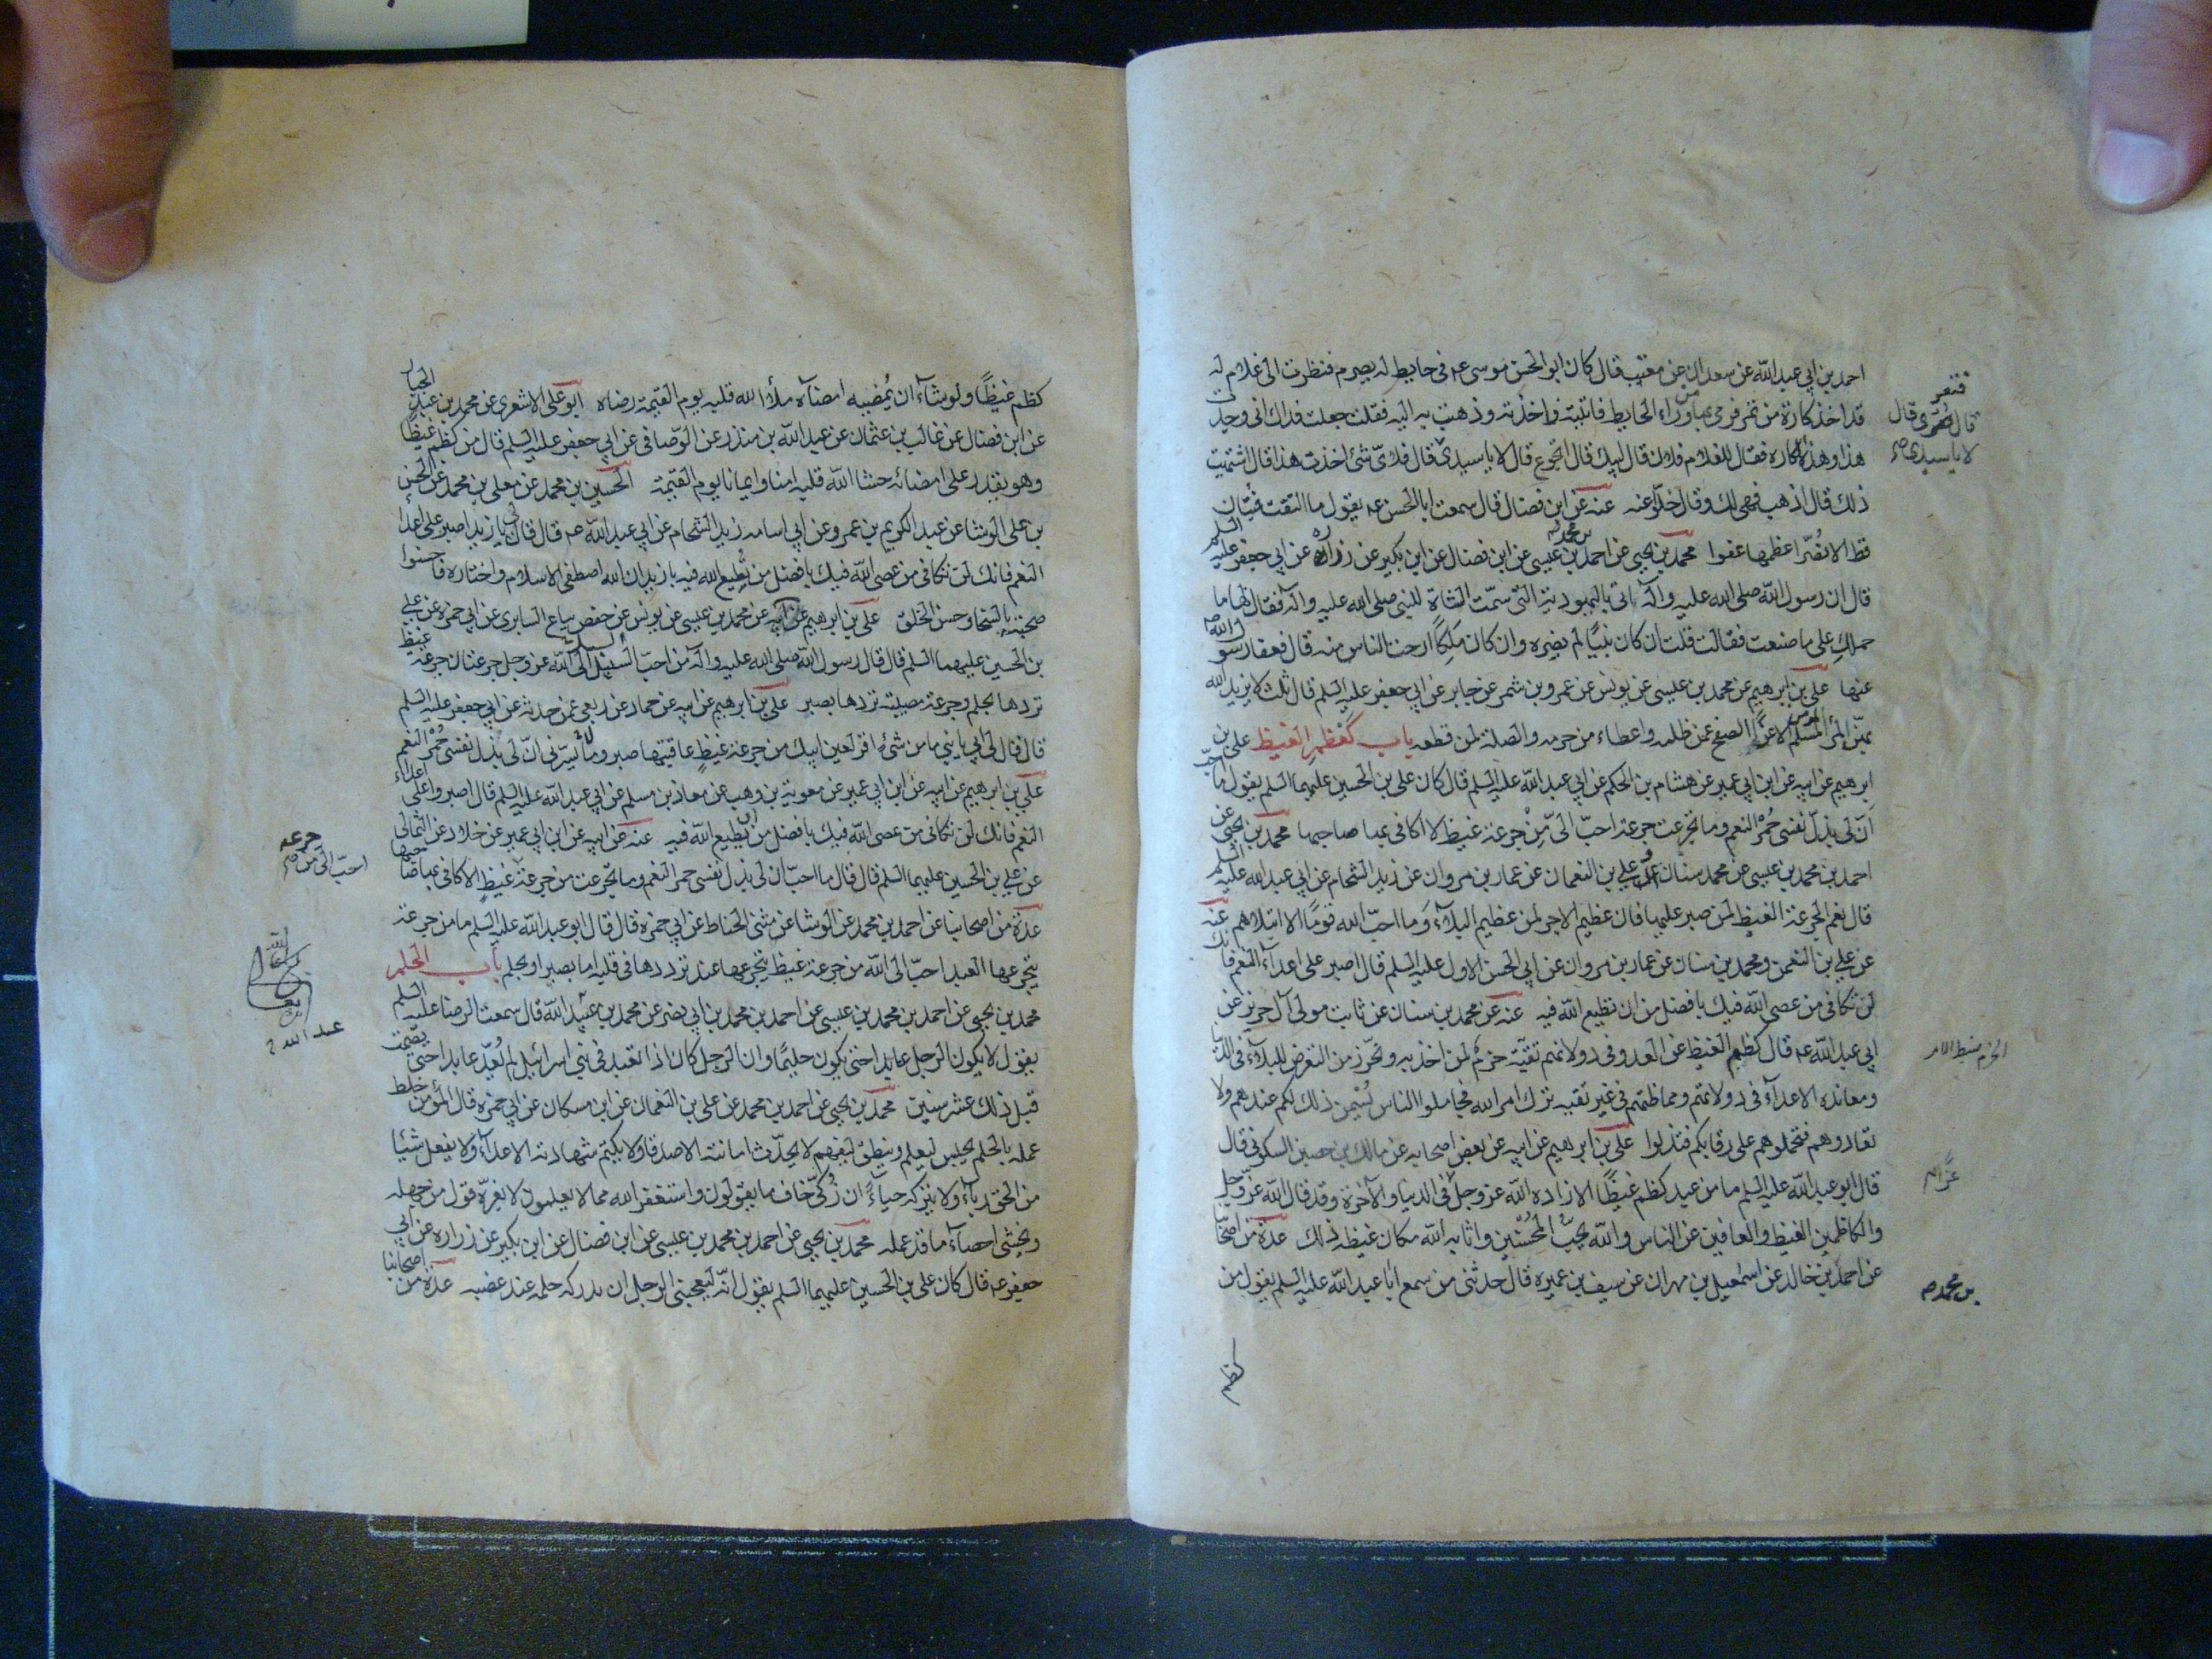 احمد بن ابي عبد الله عن سعدان عن معتب قال كان ابو الحسن موسى عه في حايط له يصرم فنظرت الى غلام له
قد اخذ كارة من تمر فرمى بها من وراء الحايط فاتيته واخذته وذهبت به اليه فقلت جعلت فداك انى وجدت
هذا وهذه الكاره فقال للغلام فلان قال لبيك قال اتجوع قال لا يا سيدي قال فلاىّ شئ اخذت هذا قال اشتهيت
ذلك قال اذهب فهى لك وقال خلّوا عنه عنه عن ابن فضال قال سمعت ابا الحسن عه يقول ما التقت فئتان
قط الا نُصر اعظمها عفوا محمد بن يحيى عن احمد بن محمد بن عيسى عن ابن فضال عن ابن بكير عن زراره عن ابي جعفر عليه السلم
قال ان رسول الله صلى الله عليه وآله اتى باليهودية التى سمّت الشاة للنبى صلى الله عليه وآله فقال لها ما
حملكِ على ما صنعت فقالت قلت ان كان نبيًّا لم يضره وان كان مَلِكاً ارحت الناس منه قال فعفا رسول الله ص
عنها على بن ابرهيم عن محمد بن عيسى عن يونس عن عمرو بن شمر عن جابر عن ابي جعفر عليه السلم قال ثلث لا يزيد الله
بهنّ المرء المسلم الا عزًّا الصفح عمن ظلمه واعطاء من حرمه والصلة لمن قطعه باب كَظم الغيظ على بن
ابرهيم عن ابيه عن ابن ابي عمير عن هشام بن الحكم عن ابي عبد الله عليه السلم قال كان على بن الحسين عليهما السلم يقول ما احبّ
اَنّ لى بذلّ نفسى حُمْر النعم وما تجرعت جرعة احبّ الىّ مِنْ جرعة غيظ لا اكافى بها صاحبها محمد بن يحيى عن
احمد بن محمد بن عيسى عن محمد بن سنان وعلى بن النعمان عن عمار بن مروان عن زيد الشحام عن ابي عبد الله عليه السلم
قال نعم الجرعة الغيظ لمن صبر عليها فان عظيم الاجر لمن عظيم البلاء وَما احبّ الله قومًا الا ابتلاهم عنه
عن على بن النعمن ومحمد بن سنان عن عمار بن مروان عن ابي الحسن الاول عليه السلم قال اصبر على اعداء النعم فانك
لن تكافى من عصى الله فيك بافضل من ان تطيع الله فيه عنه عن محمد بن سنان عن ثابت مولى آل حريز عن
ابي عبد الله عه قال كظم الغيظ عن العدو فى دولاتهم تقيّة حزم لمن اخذ به وتحرّز من التعرض للبلاء فى الدنيا
ومعانده الاعداء فى دولاتهم ومماظتهم فى غير تقيه ترك امر الله فجاملوا الناس يُسْمِن ذلك لكم عندهم ولا
تعادوهم فتحملوهم على رقابكم فتذلوا على بن ابرهيم عن ابيه عن بعض اصحابه عن مالك بن حصين السكونى قال
قال ابو عبد الله عليه السلم ما من عبد كظم غيظًا الا زاده الله عز وجل عزًّا فى الدنيا والآخرة وقد قال الله عز وجل
والكاظمين الغيظ والعافين عن الناس والله يحبُّ المُحْسنين واثابه الله مكان غيظه ذلك عدة من اصحابنا
عن احمد بن خالد عن اسمعيل بن مهران عن سيف بن عميره قال حدثنى من سمع ابا عبد الله عليه السلم يقول من
قال
لا يا سيدى ص
الحزم ضبط الامر
بن محمد ص
كظم
كظم غيظًا ولو شاء ان يُمضيه امضاه ملأ الله قلبه يوم القيمة رضاه ابو على الاشعرى عن محمد بن عبد الجبار
عن ابن فضال عن غالب بن عثمان عن عبد الله بن منذر عن الوصافى عن ابي جعفر عليه السلم قال من كظم غيظًا
وهو يقدر على امضائه حشا الله قلبه امنا وايمانا يوم القيمة الحسين بن محمد عن معلى بن محمد عن الحسن
بن على الوشا عن عبد الكريم بن عمرو عن ابي اسامه زيد الشحام عن ابي عبد الله عه قال قال لى يا زيد اصبر على اعداء
النعم فانك لن تكافى من عصى الله فيك بافضل من ان تُطيع الله فيه يا زيد ان الله اصطفى الاسلام واختاره فاحسنوا
صحبته بالسخا وحسن الخلق على بن ابرهيم عن ابيه عن محمد بن عيسى عن يونس عن حفص بياع السابرى عن ابي حمزه عن على
بن الحسين عليهما السلم قال قال رسول الله صلى الله عليه وآله من احبّ السبيل الى الله عز وجل جرعتان جرعة غيظ
تردها بحلم وجرعة مصيبة تردها بصبر على بن ابرهيم عن ابيه عن حماد عن ربعى عمن حدثه عن ابي جعفر عليه السلم
قال قال لى ابي يا بني ما من شئ اقر لعين ابيك من جرعة غيظٍ عاقبتها صبر وما يسرّنى انّ لى بذل نفسى حُمْر النعم
على بن ابرهيم عن ابيه عن ابن ابي عمير عن معوية بن وهب عن معاذ بن مسلم عن ابي عبد الله عليه السلم قال اصبروا على اعداء
النعم فانك لن تكافى من عصى الله فيك بافضل من ان تطيع الله فيه عنه عن ابيه عن ابن ابي عمير عن خلاد عن الثمالى
عن على بن الحسين عليهما السلم قال قال ما احبّ ان لى بذل نفسى حمر النعم وما تجرعت من جرعة غيظٍ لا اكافى بها صاحبها
عدة من اصحابنا عن احمد بن محمد عن الوشا عن مثنى الحناط عن ابي حمزه قال قال ابو عبد الله عليه السلم ما من جرعة
يتجرعها العبد احبّ الى الله من جرعة غيظ يتجرعها عند ترددها فى قلبه اما بصبر او بحلم باب الحلم
محمد بن يحيى عن احمد بن محمد بن عيسى عن احمد بن محمد بن ابي نصر عن محمد بن عبيد الله قال سمعت الرضا عليه السلم
يقول لا يكون الرجل عابدا حتى يكون حليمًا وان الرجل كان اذا تعبد فى بني اسرائيل لم يُعدّ عابدا حتى يصمت
قبل ذلك عشر سنين محمد بن يحيى عن احمد بن محمد عن على بن النعمان عن ابن مسكان عن ابي حمزه قال المؤمن خلط
عمله بالحلم يجلس ليعلم وينطق ليفهم لا يحدّث امانته الاصدقا ولا يكتم شهادته الاعداء ولا يفعل شيئا
من الحق رياء ولا يتركه حياءً ان زُكّى خاف ما يقولون واستغفر الله مما لا يعلمون لا يغرّه قول من جهله
ويخشى احصاء ما قد عمله محمد بن يحيى عن احمد بن محمد بن عيسى عن ابن فضال عن ابن بكير عن زراره عن ابي
جعفر عه قال كان على بن الحسين عليهما السلم يقول انّه ليعجبنى الرجل ان يدركه حلمه عند غضبه عدة من اصحابنا
جرعه
احبّ الىّ من ص
عبد الله